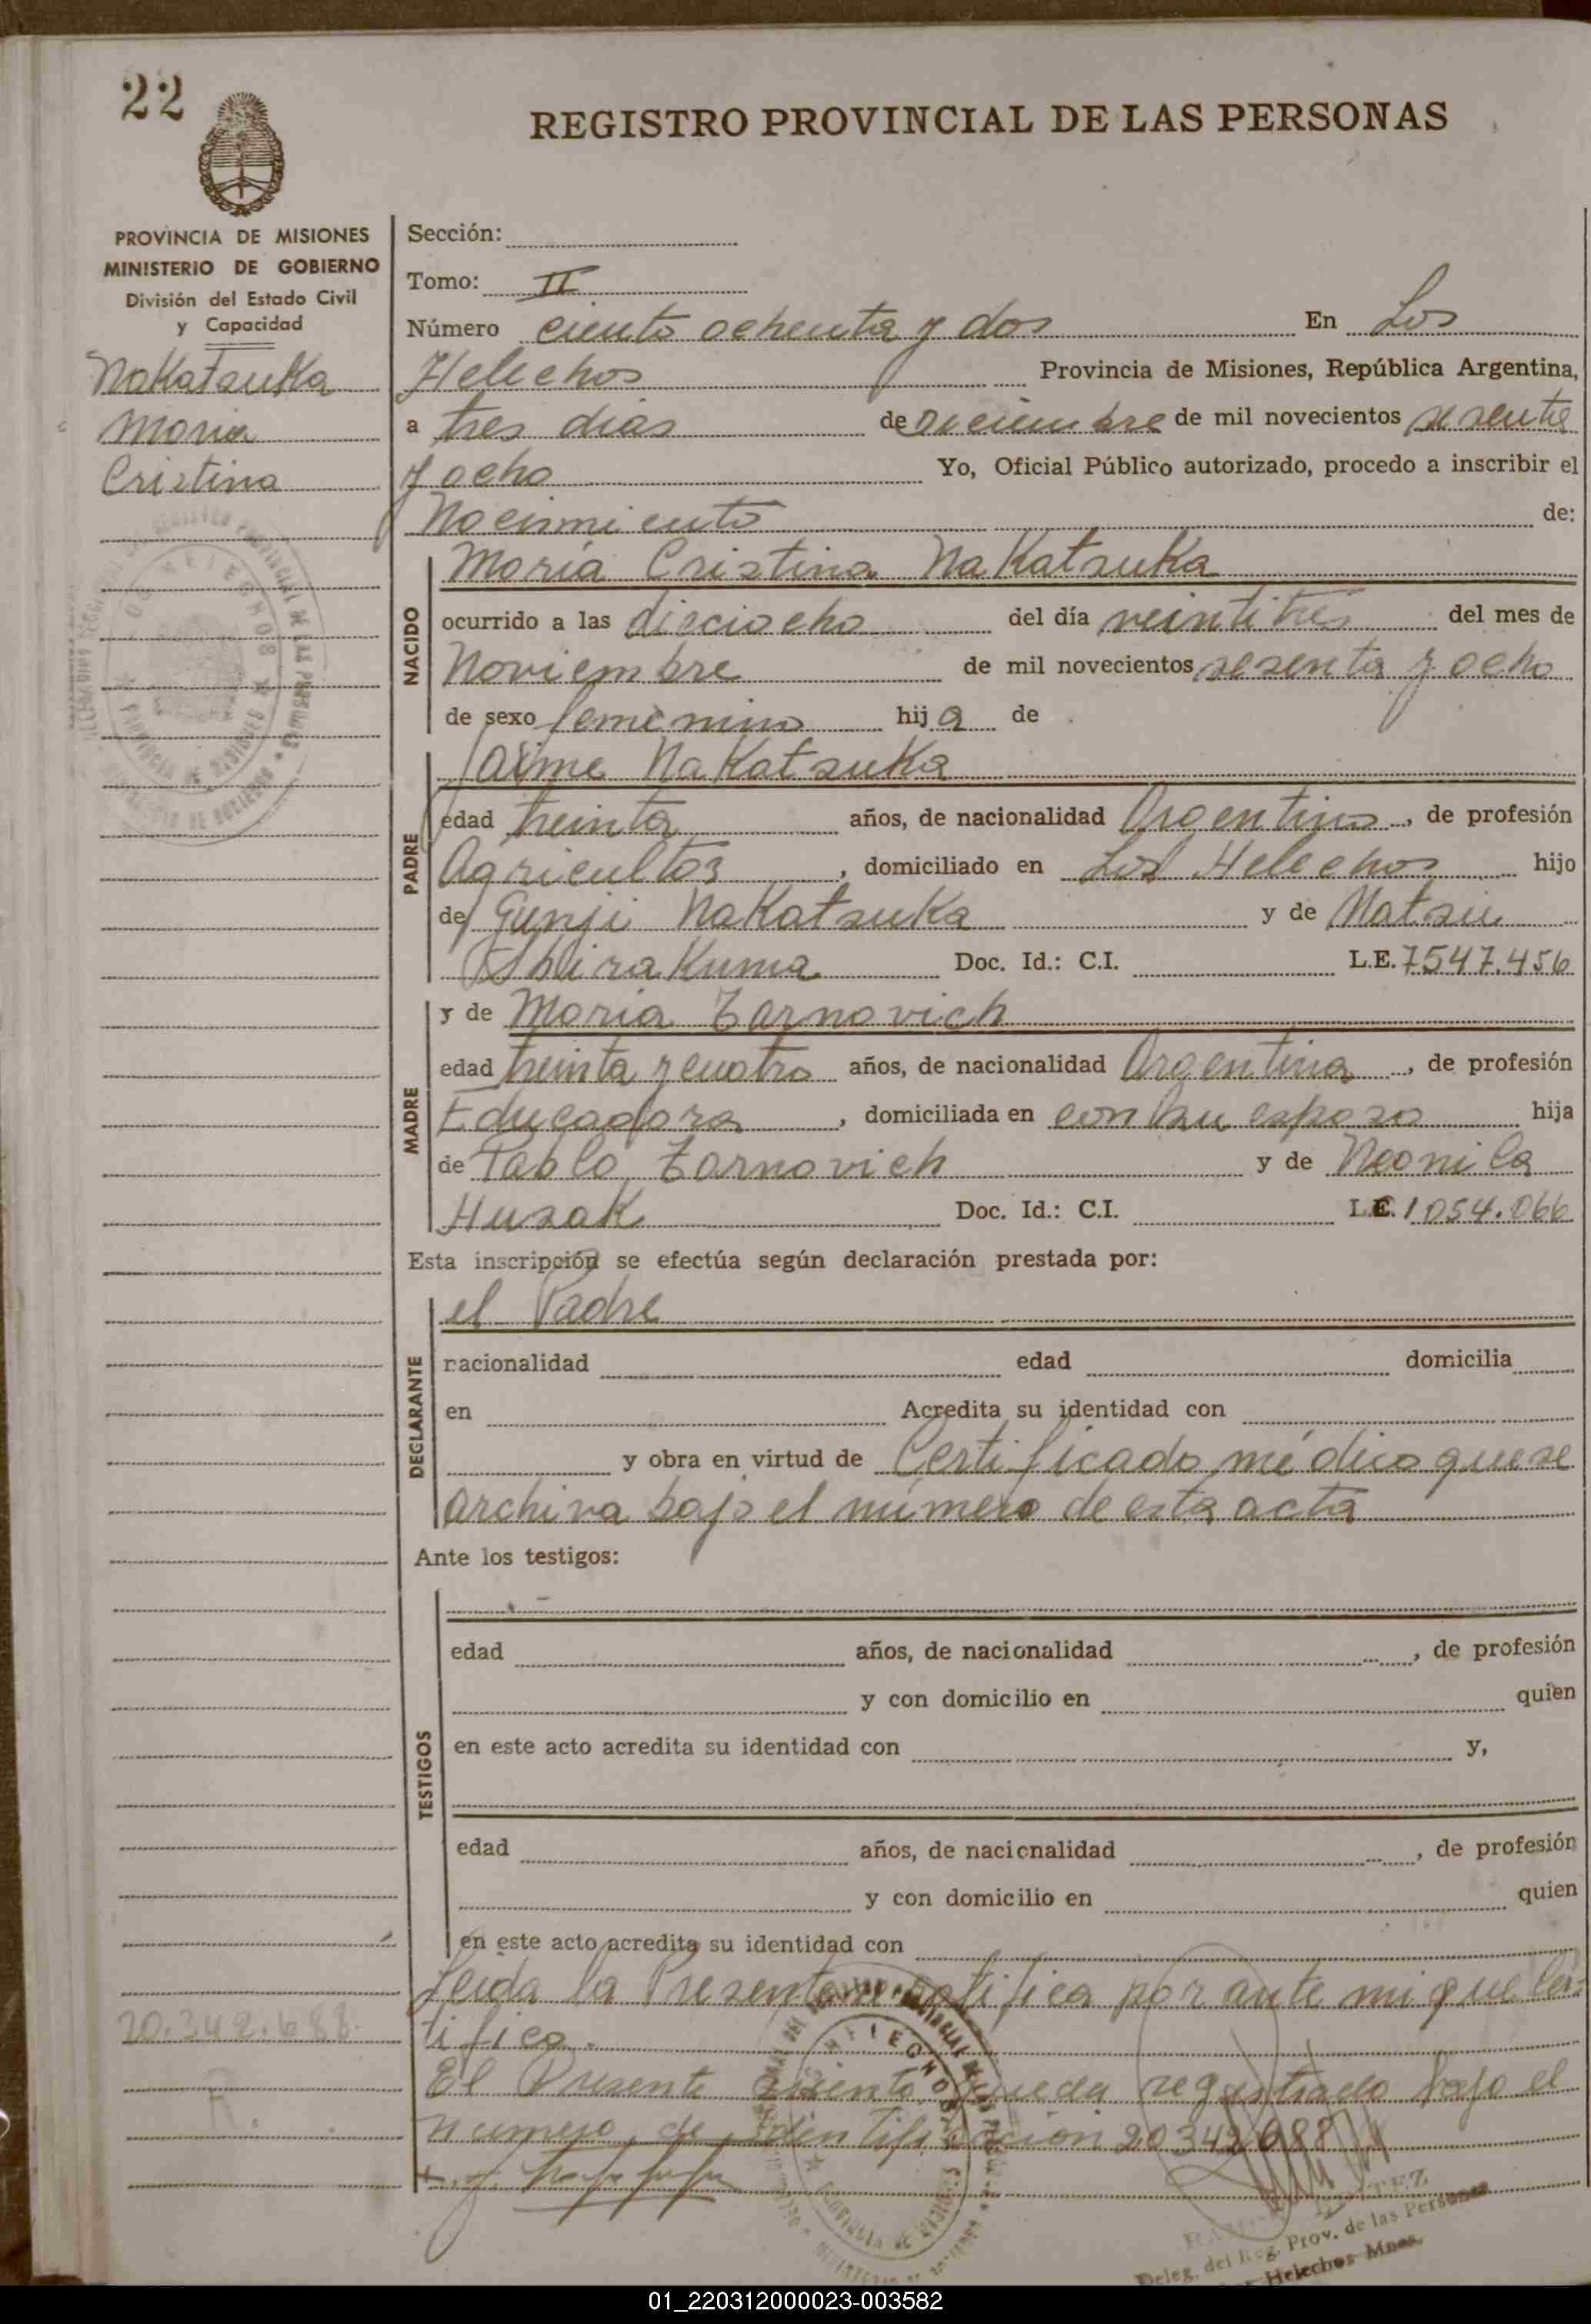 22
REGISTRO PROVINCIAL DE LAS PERSONAS
PROVINCIA DE MISIONES
MINISTERIO DE GOBIERNO
División del Estado Civil
y Capacidad
Nakatsuka
Maria
Cristina
Sección:
Tomo: II
Número ciento ochenta y dos En Los
Helechos Provincia de Misiones, República Argentina,
a tres dias de Diciembre de mil novecientos sesenta
y ocho Yo, Oficial Público autorizado, procedo a inscribir el
Nacimiento de:
NACIDO
María Cristina Nakatsuka
ocurrido a las dieciocho del día veintitres del mes de
Noviembre de mil novecientos sesenta y ocho
de sexo femenino hija de
PADRE
Jaime Nakatsuka
edad treinta años, de nacionalidad Argentino, de profesión
Agricultor, domiciliado en Los Helechos hijo
de Gunji Nakatsuka y de Matsu
Shirakuma Doc. Id.: C.I. L.E. 7547.456
MADRE
y de Maria Zarnovich
edad treinta y cuatro años, de nacionalidad Argentina, de profesión
Educadora, domiciliada en con su esposo hija
de Pablo Zarnovich y de Neonila
Husak Doc. Id.: C.I. L.C. 1054.066
Esta inscripción se efectúa según declaración prestada por:
DECLARANTE
el Padre
nacionalidad edad domicilia
en Acredita su identidad con
y obra en virtud de Certificado médico que se
archiva bajo el número de esta acta
Ante los testigos:
TESTIGOS
edad años, de nacionalidad , de profesión
y con domicilio en quien
en este acto acredita su identidad con y,
edad años, de nacionalidad , de profesión
y con domicilio en quien
en este acto acredita su identidad con
Leida la Presente ratifica por ante mi que cer-
tifico.
20.342.688.
R.
El Presente asiento queda registrado bajo el
numero de identificación 20342688
Deleg. del Reg. Prov. de las Personas
Helechos Mnes.
01_220312000023-003582